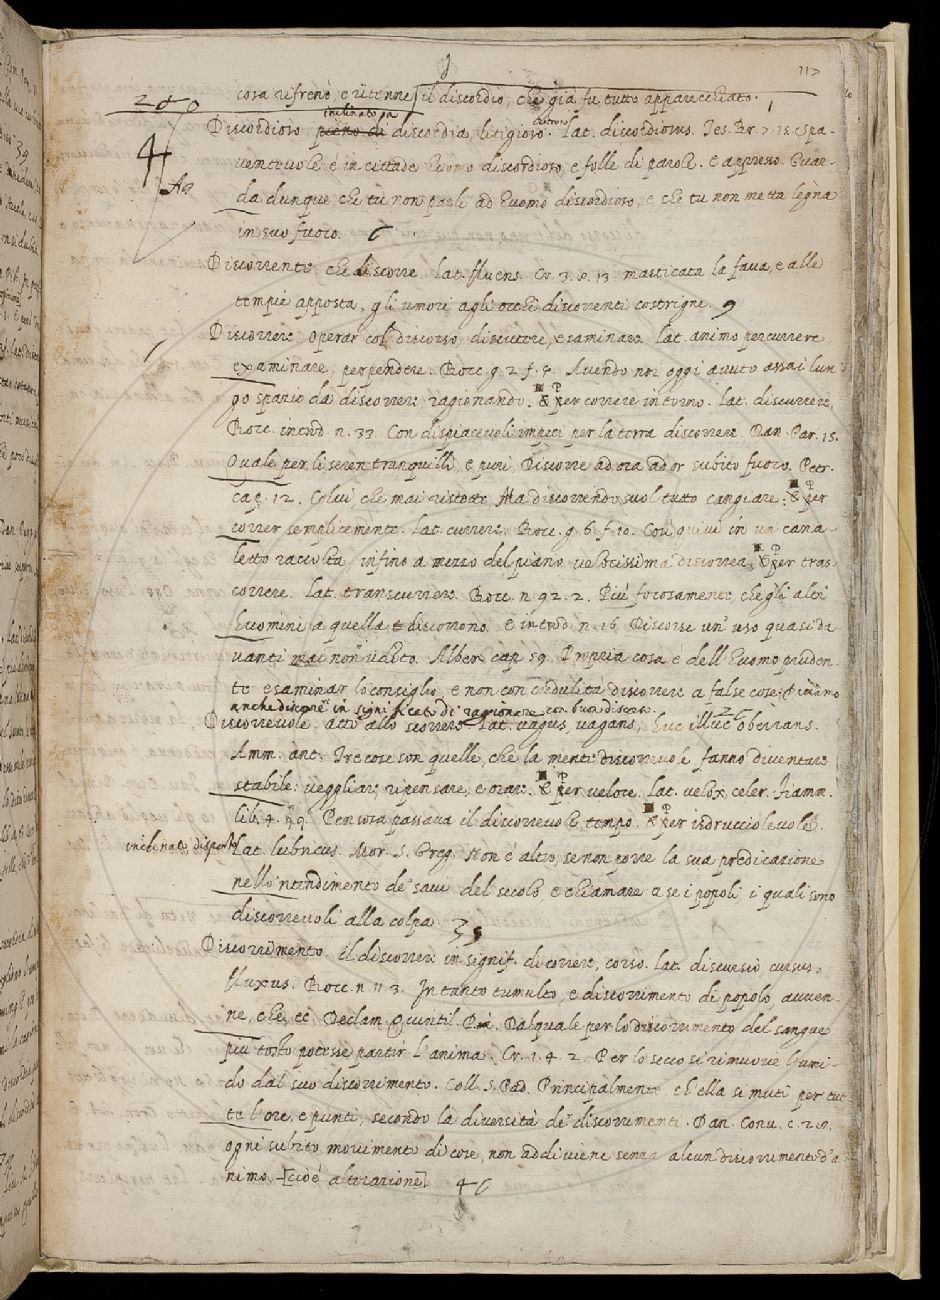 117
cosa rifrenò, e ritenne il discordio, che già fu tutto apparecchiato.
200
inclinato a
Discordioso pieno di discordia, litigioso. Lat. discordiosus. Tes. Br. 7. 15. Spa-
4
ventevole è in cittade huomo discordioso, e folle di parole. e appresso. Guar-
da dunque, che tu non parli ad huomo discordioso, e che tu non metta legna
in suo fuoco.
Discorrente che discorre. Lat. fluens. Cr. 3. 8. 13 masticata la fava, e alle
tempie apposta, gli umori agli occhi discorrenti costrigne.
Discorrere operar col discorso, discutere, esaminare. Lat. animo percurrere,
examinare, perpendere. Bocc. g. 2. f. 5. Avendo noi oggi avuto assai lun-
go spazio da discorrere ragionando. & per correre intorno. Lat. discurrere.
Bocc. introd. n. 33. Con dispiacevoli impeti per la terra discorrere. Dan. Par. 15.
Quale per li seren tranquilli, e puri, Discorre ad ora ad or subito fuoco. Petr.
cap. 12. Colui che mai ristette, Ma discorrendo suol tutto cangiare. & per
correr semplicemente. Lat. currere. Bocc. g. 6. f. 10. Con quivi in un cana-
letto raccolta infino a mezzo del piano velocissima discorrea, & per tras-
correre. Lat. transcurrere. Bocc. n. 92. 2. Più focosamente, che gli altri
huomini a quella discorrono. e introd. n. 16. Discorse un' uso quasi da-
vanti mai non udito. Alber. cap. 59. Propria cosa è dell' huomo pruden-
te esaminar lo consiglio, e non con credulità discorrere a false cose. diciamo
anche discorrere in significato di ragionare con buon discorso.
Discorrevole. atto allo scorrere. Lat. vagus, vagans, huc illuc oberrans.
Amm. ant. Tre cose son quelle, che la mente discorrevole fanno diventare
stabile: vegghiare, ripensare, e orare. & per veloce. Lat. velox, celer. Fiamm.
lib. 4. 99. Pensosa passava il discorrevole tempo. & per isdrucciolevole.
inclinato, disposto
Lat. lubricus. Mor. S. Greg. Non è altro, se non porre la sua predicazione
nello 'ntendimento de' savi del secolo, e chiamare a se i popoli i quali sono
discorrevoli alla colpa.
Discorrimento. il discorrere in signif. di correre, corso. Lat. discursio, cursus,
fluxus. Bocc. n. 11. 3. In tanto tumulto, e discorrimento di popolo avven-
ne, che, ec. Declam. Quintil. Dal quale per lo discorrimento del sangue
più tosto potesse partir l'anima. Cr. 1. 4. 2. Per lo secco si rimuove l'umi-
do dal suo discorrimento. Coll. S. Pad. Principalmente, ch'ella si muti per tut-
te l'ore, e punti, secondo la diversità de' discorrimenti. Dan. Conv. c. 28.
ogni subito movimento di cose, non addiviene senza alcun discorrimento d'a-
nimo [cioè alterazione]